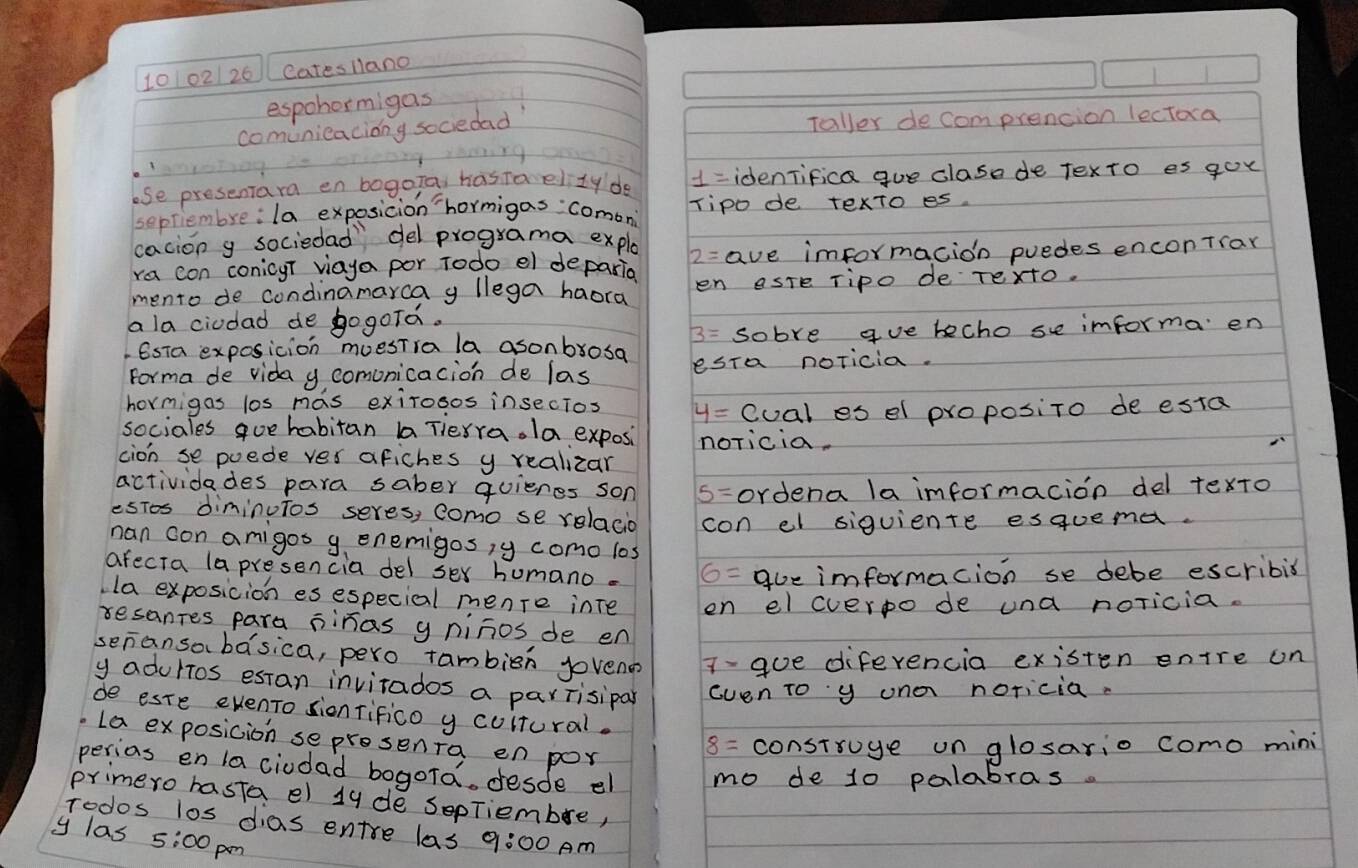 10/02/26 Catesllano
espohormigas
comunicación y sociedad
.Se presentara en bogota hasta el 14 de
septiembre: la exposición "hormigas: comoni
cación y sociedad" del programa explo
ra con conicyt viaya por todo el departa
mento de condinamarca y llega haora
a la ciudad de bogotá.
.Esta exposición muestra la asonbrosa
forma de vida y comonicación de las
hormigas los más exitosos insectos
sociales que habitan la tierra.la exposi
ción se puede ver afiches y realizar
actividades para saber quienes son
estos diminutos seres, como se relacio
nan con amigos y enemigos, y como los
afecta la presencia del ser humano.
.la exposición es especial mente inte
resantes para niñas y niños de en
señansa básica, pero tambien yovenes
y adultos estan invitados a partisipar
de este evento sientifico y cultural.
.La exposición se presenta en por
perias en la ciudad bogotá. desde el
primero hasta el 14 de septiembre,
todos los dias entre las 9:00 Am
y las 5:00 pm
Taller de comprencion lectora
1=identifica que clase de texto es qur
tipo de texto es.
2=Que imformación puedes encontrar
en este tipo de texto.
3=sobre que hecho se imforma en
esta noticia.
4=Cual es el proposito de esta
noticia.
5=ordena la imformación del texto
con el siguiente esquema.
6=que imformacion se debe escribir
en el cuerpo de una noticia.
7-que diferencia existen entre un
cuento y una noticia.
8=construye un glosario como mini
mo de 10 palabras.